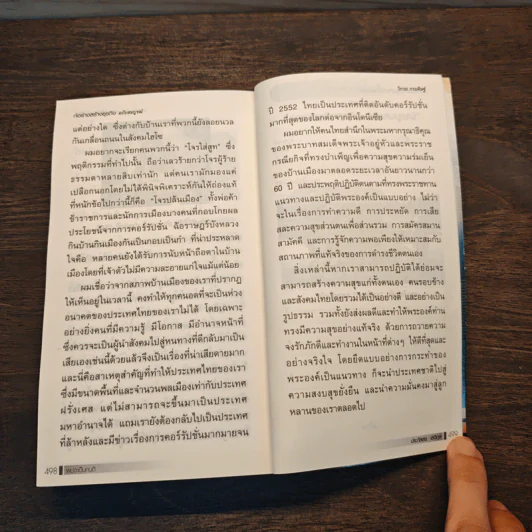 ถอยห่างสร้างธุรกิจ ฉบับสมบูรณ์
แต่อย่างใด ซึ่งต่างกับบ้านเราที่พวกนี้ยังลอยนวล
กันเกลื่อนถนนในสังคมไฮโซ
ผมอยากจะเรียกคนพวกนี้ว่า “โจรใส่สูท” ซึ่ง
พฤติกรรมที่ทำไปนั้น ถือว่าเลวร้ายกว่าโจรผู้ร้าย
ธรรมดาหลายสิบเท่านัก แต่คนเรามักมองแค่
เปลือกนอกโดยไม่ได้พินิจพิเคราะห์กันให้ถ่องแท้
ที่หนักข้อไปกว่านี้ก็คือ “โจรปล้นเมือง” ทั้งพ่อค้า
ข้าราชการและนักการเมืองบางคนที่กอบโกยผล
ประโยชน์จากการคอร์รัปชัน ฉ้อราษฎร์บังหลวง
กินบ้านกินเมืองกันเป็นกอบเป็นกำ ที่น่าประหลาด
ใจคือ หลายคนยังได้รับการนับหน้าถือตาในบ้าน
เมืองโดยที่เจ้าตัวไม่มีความละอายแก่ใจแม้แต่น้อย
ผมเชื่อว่าจากสภาพบ้านเมืองของเราที่ปรากฏ
ให้เห็นอยู่ในเวลานี้ คงทำให้ทุกคนอดที่จะเป็นห่วง
อนาคตของประเทศไทยของเราไม่ได้ โดยเฉพาะ
อย่างยิ่งคนที่มีความรู้ มีโอกาส มีอำนาจหน้าที่
ซึ่งควรจะเป็นผู้นำสังคมไปสู่หนทางที่ดีกลับมาเป็น
เสียเองเช่นนี้ด้วยแล้วจึงเป็นเรื่องที่น่าเสียดายมาก
และนี่คือสาเหตุสำคัญที่ทำให้ประเทศไทยของเรา
ซึ่งมีขนาดพื้นที่และจำนวนพลเมืองเท่ากับประเทศ
ฝรั่งเศส แต่ไม่สามารถจะขึ้นมาเป็นประเทศ
มหาอำนาจได้ แถมเรายังต้องกลับไปเป็นประเทศ
ที่ล้าหลังและมีข่าวเรื่องการคอร์รัปชั่นมากมายจน
498
วิกรม กรมดิษฐ์
ปี 2552 ไทยเป็นประเทศที่ติดอันดับคอร์รัปชั่น
มากที่สุดของโลกต่อจากอินโดนีเซีย
ผมอยากให้คนไทยสำนึกในพระมหากรุณาธิคุณ
ของพระบาทสมเด็จพระเจ้าอยู่หัวและพระราช
กรณียกิจที่ทรงบำเพ็ญเพื่อความสุขความร่มเย็น
ของบ้านเมืองมาตลอดระยะเวลาอันยาวนานกว่า
60 ปี และประพฤติปฏิบัติตนตามที่ทรงพระราชทาน
แนวทางและปฏิบัติพระองค์เป็นแบบอย่าง ไม่ว่า
จะในเรื่องการทำความดี การประหยัด การเสีย
สละความสุขส่วนตนเพื่อส่วนรวม การสมัครสมาน
สามัคคี และการรู้จักความพอเพียงให้เหมาะสมกับ
สถานภาพที่แท้จริงของการดำรงชีวิตตนเอง
สิ่งเหล่านี้หากเราสามารถปฏิบัติได้ย่อมจะ
สามารถสร้างความสุขแก่ทั้งตนเอง คนรอบข้าง
และสังคมไทยโดยรวมได้เป็นอย่างดี และอย่างเป็น
รูปธรรม รวมทั้งยังส่งผลดีและทำให้พระองค์ท่าน
ทรงมีความสุขอย่างแท้จริง ด้วยการถวายความ
จงรักภักดีและทำงานในหน้าที่ต่างๆ ให้ดีที่สุดและ
อย่างจริงใจ โดยยึดแบบอย่างการกระทำของ
พระองค์เป็นแนวทาง ก็จะนำประเทศชาติไปสู่
ความสงบสุขยั่งยืน และนำความมั่นคงมาสู่ลูก
หลานของเราตลอดไป
499